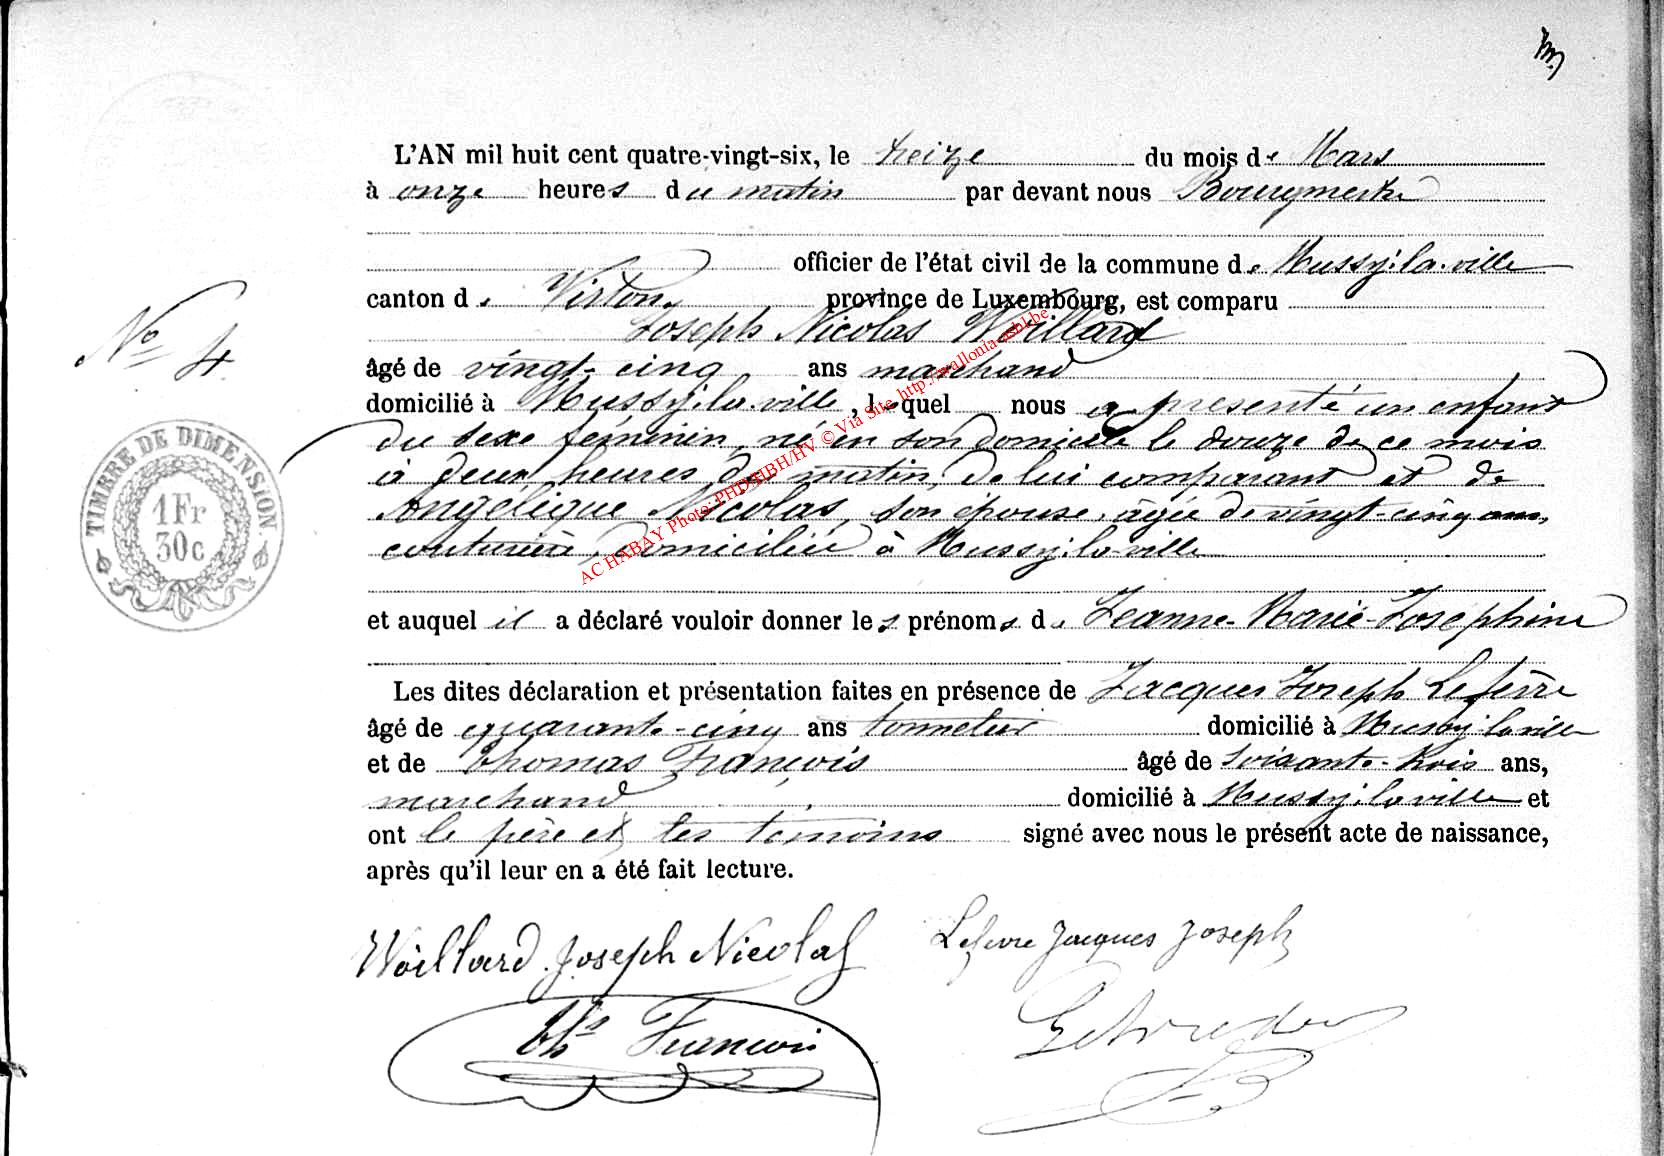 L'AN mil huit cent quatre-vingt-six, le treize du mois de Mars
à onze heures du matin par devant nous Bourgmestre
officier de l'état civil de la commune de Mussy-la-ville
canton de Virton, province de Luxembourg, est comparu
Joseph Nicolas Woillard
No 4
âgé de vingt-cinq ans marchand
domicilié à Mussy-la-ville, lequel nous a présenté un enfant
du sexe féminin, né en son domicile le douze de ce mois
à deux heures du matin, de lui comparant et de
Angélique Nicolas, son épouse, âgée de vingt-cinq ans,
couturière, domiciliée à Mussy-la-ville
TIMBRE DE DIMENSION.
1 Fr
30 c
et auquel il a déclaré vouloir donner les prénoms de Jeanne-Marie-Joséphine
Les dites déclaration et présentation faites en présence de Jacques Joseph Lefèvre
âgé de quarante-cinq ans tonnelier domicilié à Mussy-la-ville
et de Thomas François âgé de soixante-trois ans,
marchand domicilié à Mussy-la-ville et
ont le père et les témoins signé avec nous le présent acte de naissance,
après qu'il leur en a été fait lecture.
Woillard Joseph Nicolas
Lefevre Jacques Joseph
Ths François
AC HABAY Photo: PHD/HBH/HV © Via Site http://wallonia-asbl.be